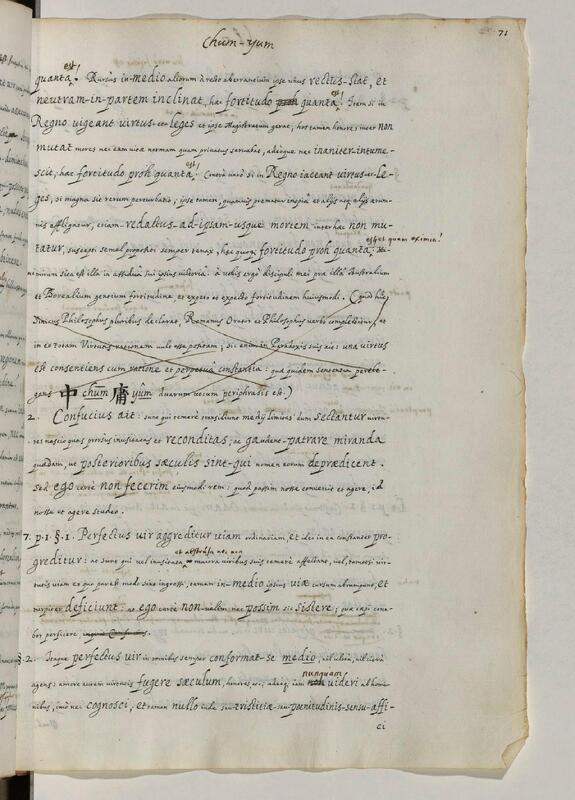 chūm-yum
71
est
quanta! Rursùs in-medio aliorum à recto aberrantium ipse unus rectus-stat, et
neutram-in-partem inclinat, haec fortitudo proh quanta est! Item si in
Regno vigeant virtus-et-leges et ipse Magistratum gerat, hos tamen honores inter non
mutat mores nec eam vitae normam quam privatus servabat, adeòque nec inaniter-intume-
scit; haec fortitudo proh quanta est! Contrà verò si in Regno iaceant virtus-et-le-
ges, si magna sit rerum perturbatio; ipse tamen, quamvis prematur inopiâ et alijs atque alijs aerum-
nis affligatur, etiam-redactus-ad-ipsam-usque mortem inter haec non mu-
tatur, suscepti semel propositi semper tenax, haec quoque fortitudo proh quanta est et quam eximia!
nimirum sita est illa in assiduâ sui ipsius victoria. à vobis ergò discipuli mei prae illâ Australium
et Borealium gentium fortitudine et expeto et expecto fortitudinem huiusmodi. (quod hîc
Sinicus Philosophus pluribus declarat, Romanus Orator et Philosophus verbo complectitur, et
in eo totam Virtutis rationem
est consentiens cum ratione et perpetua constantia: quae quidem sententia perele-
gans 中 chūm 庸 yûm duarum vocum periphrasis est.)
2. Confucius ait: sunt qui temerè transiliunt medij limites dum sectantur virtu-
tes nescio quas prorsus inusitatas et reconditas; ac gaudent-patrare miranda
quaedam, ut posterioribus saeculis sint-qui nomen eorum depraedicent.
Sed ego certè non fecerim eiusmodi rem: quod passim nosse convenit et agere, id
nosse et agere studeo.
7. p.1. §.1. Perfectus vir aggreditur viam ordinariam, et ideo in ea constanter pro-
et abstrusa nec non
greditur: at sunt qui vel inusitata maiora viribus suis temerè affectant, vel, tametsi vir-
tutis viam eo quo par est modo sint ingressi, tamen in-medio ipsius viae cursum abrumpunt, et
turpiter deficiunt: at ego certè non-valeam nec possim sic sistere; quae caepi cona-
bor perficere,
§.2. Itaque perfectus vir in omnibus semper conformat-se medio, nil ultra, nil citra
nunquam
agens: amore autem virtutis fugere saeculum, honores etc; adeòque iam videri ab homi-
nibus, imò nec cognosci, et tamen nullo inde seu-tristitiae-seu-poenitudinis-sensu-affi-
ci